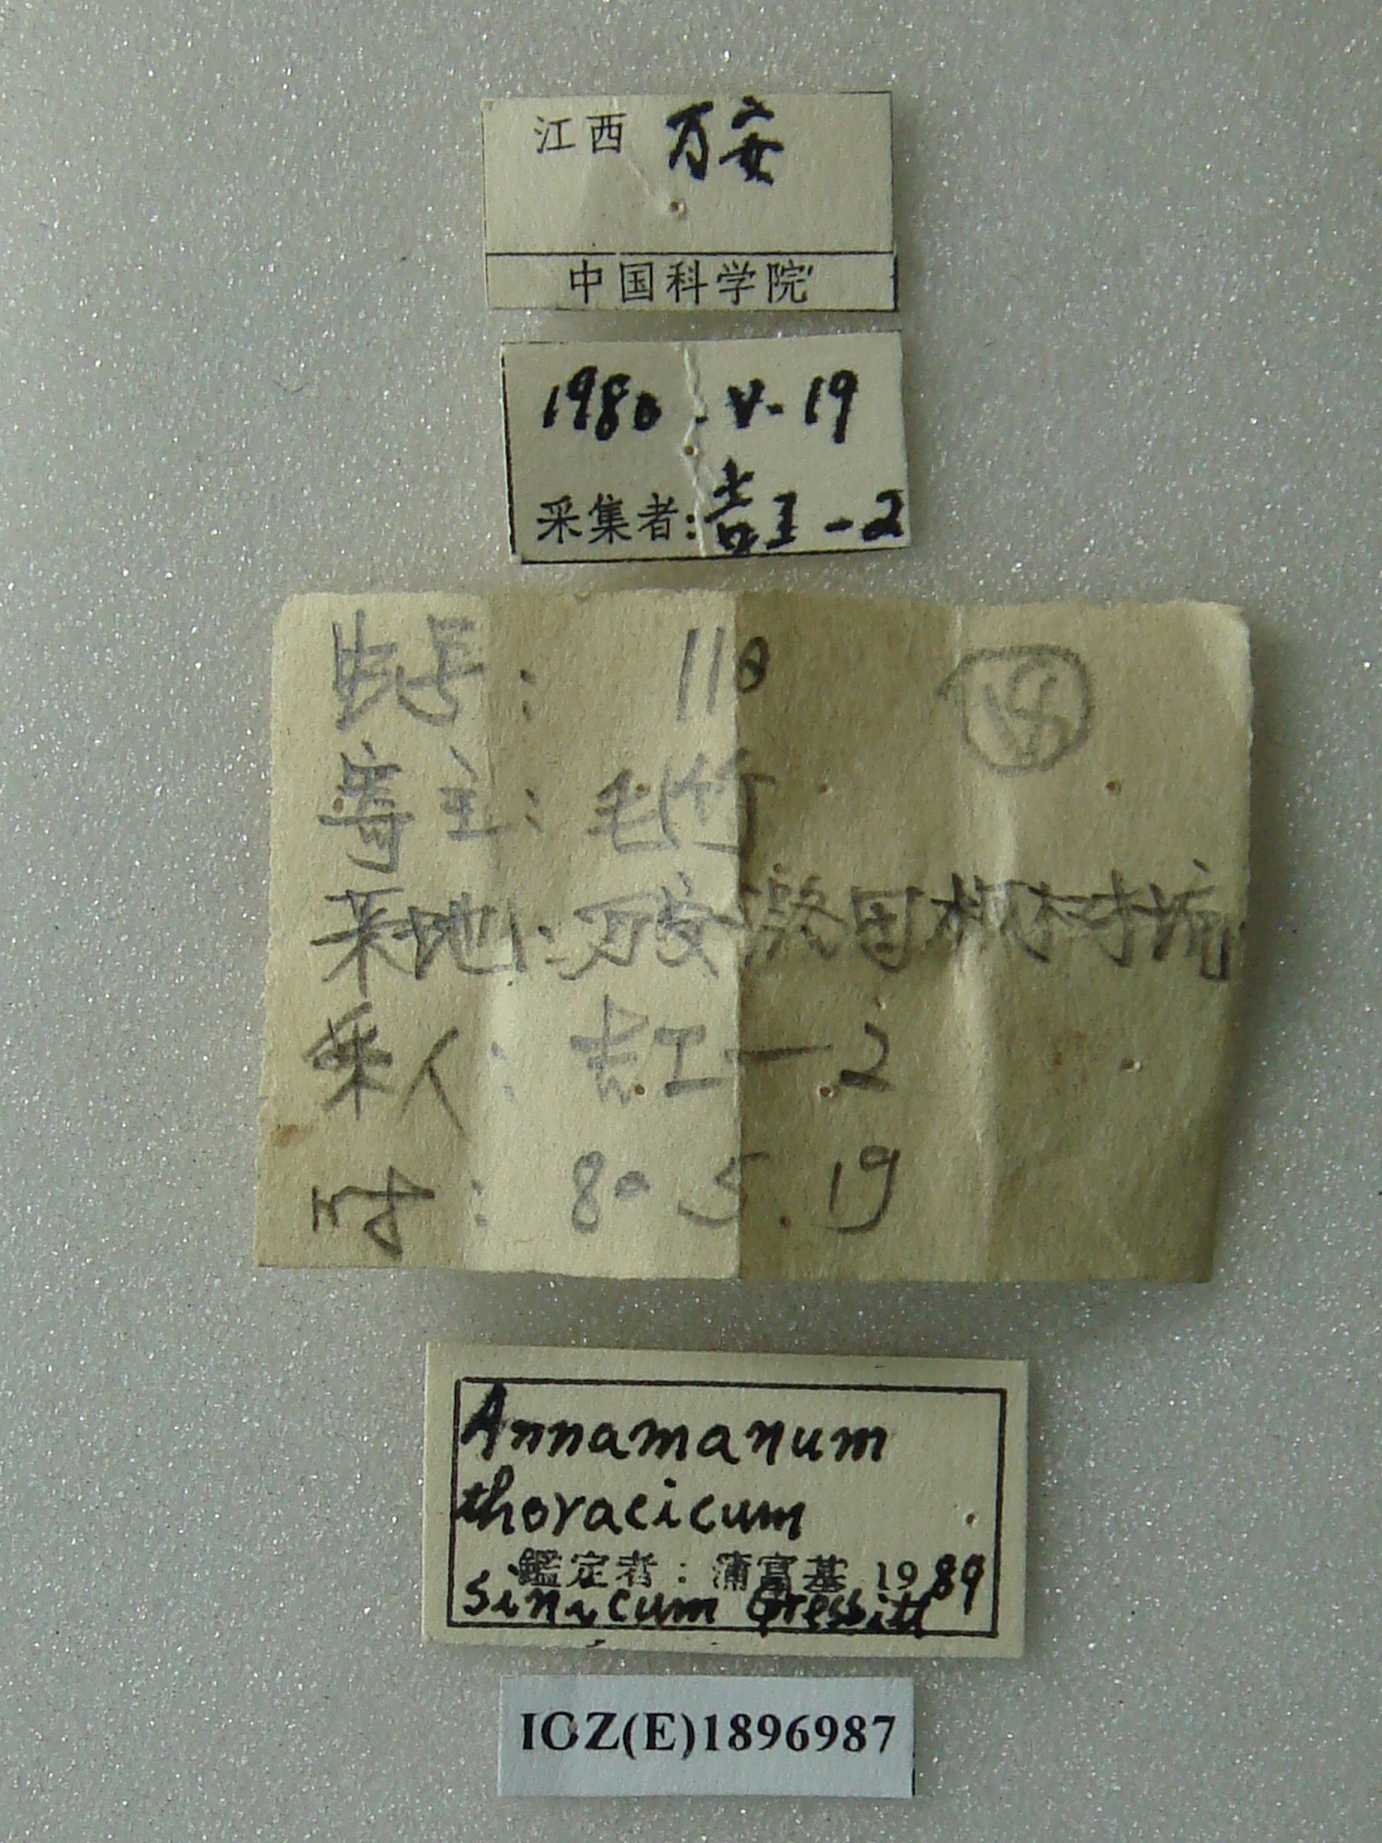 江西 万安
中国科学院
1980.V.19
采集者:吉工-2
虫号: 110
寄主: 毛竹
采地:万安 树坑
采人: 吉工-2
时: 80.5.19
Annamanum
thoracicum
鑑定者:蒲富基 1989
sinicum Gressitt
IOZ(E)1896987